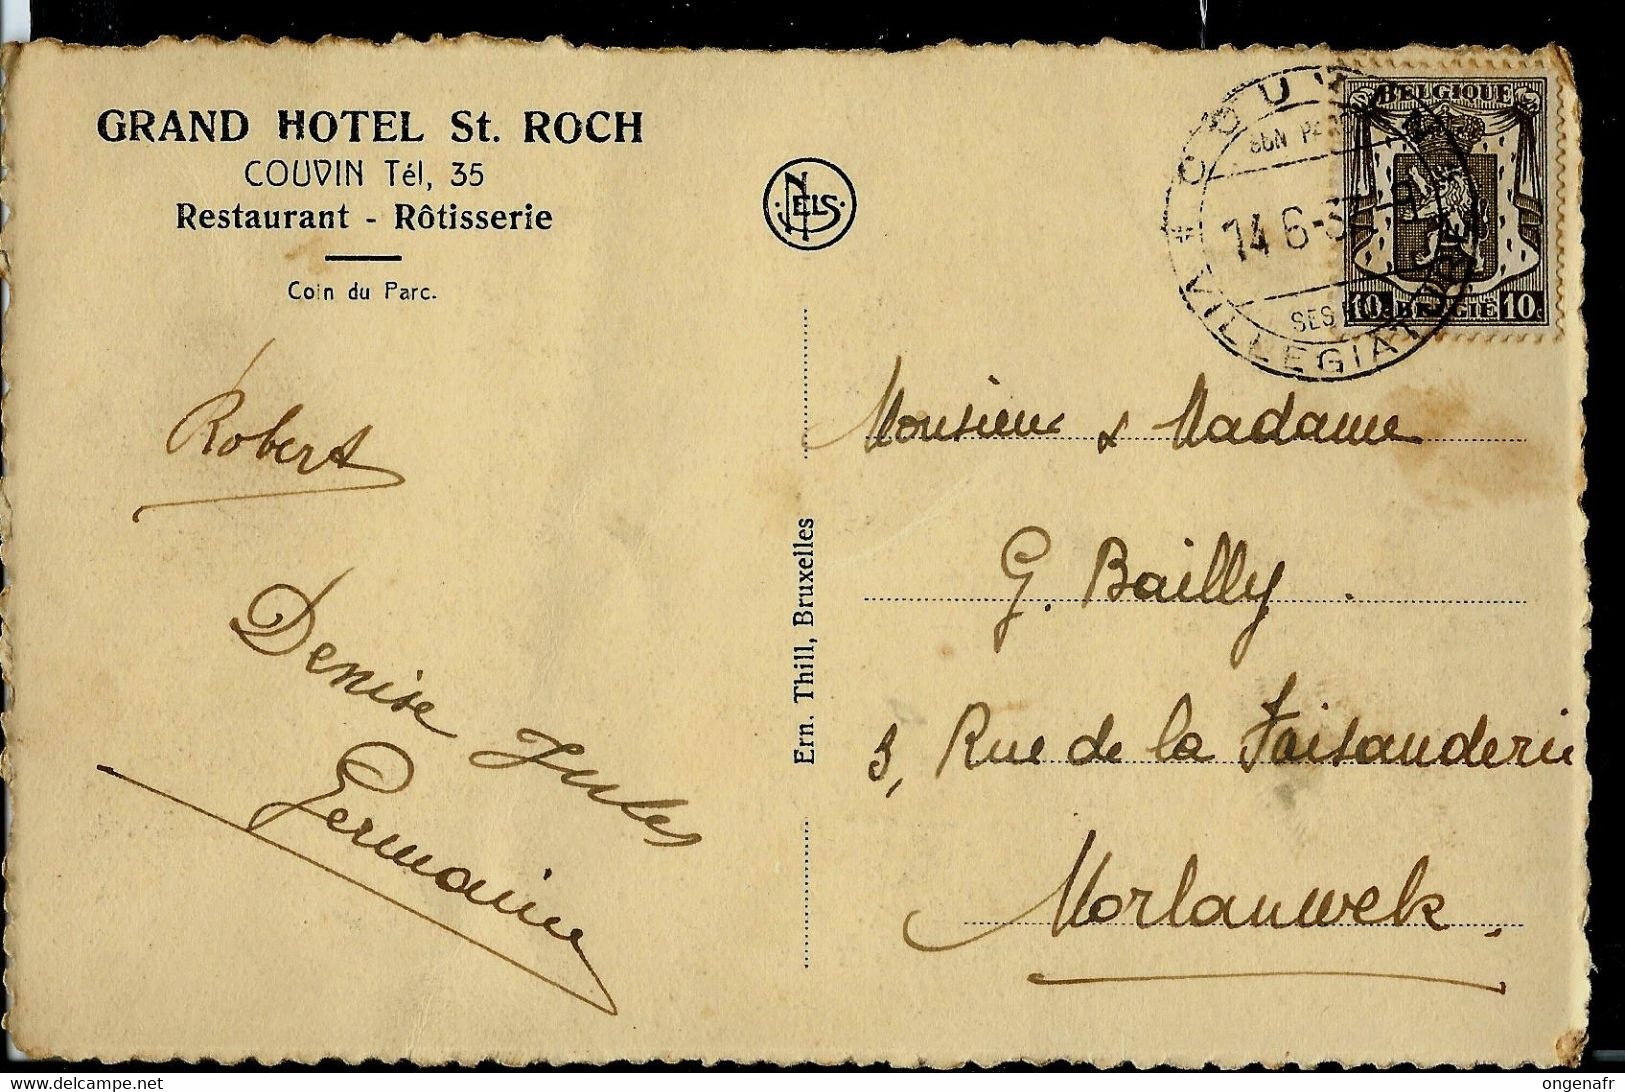 GRAND HOTEL St. ROCH
COUVIN Tél, 35
Restaurant - Rôtisserie
Coin du Parc.
NELS
BELGIQUE
COUV
SON PA
14 6-3
SES
VILLEGIAT
10c BELGIE 10c
Robert
Denise Jules
Germaine
Ern. Thill, Bruxelles
Monsieur & Madame
G. Bailly.
3, Rue de la Faisanderie
Morlanwelz.
delcampe.net
ongenafr